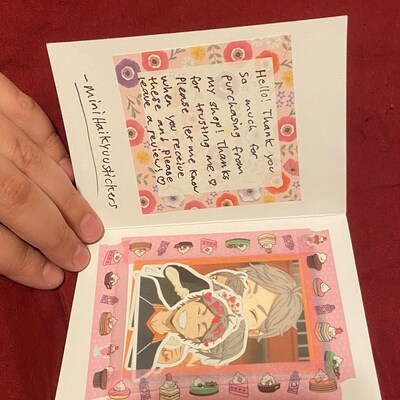 Hello! Thank you
so much for
purchasing from
my shop! Thanks
for trusting me.♡
Please let me know
when you receive
these and please
leave a review!♡
- MiniHaikyuustickers